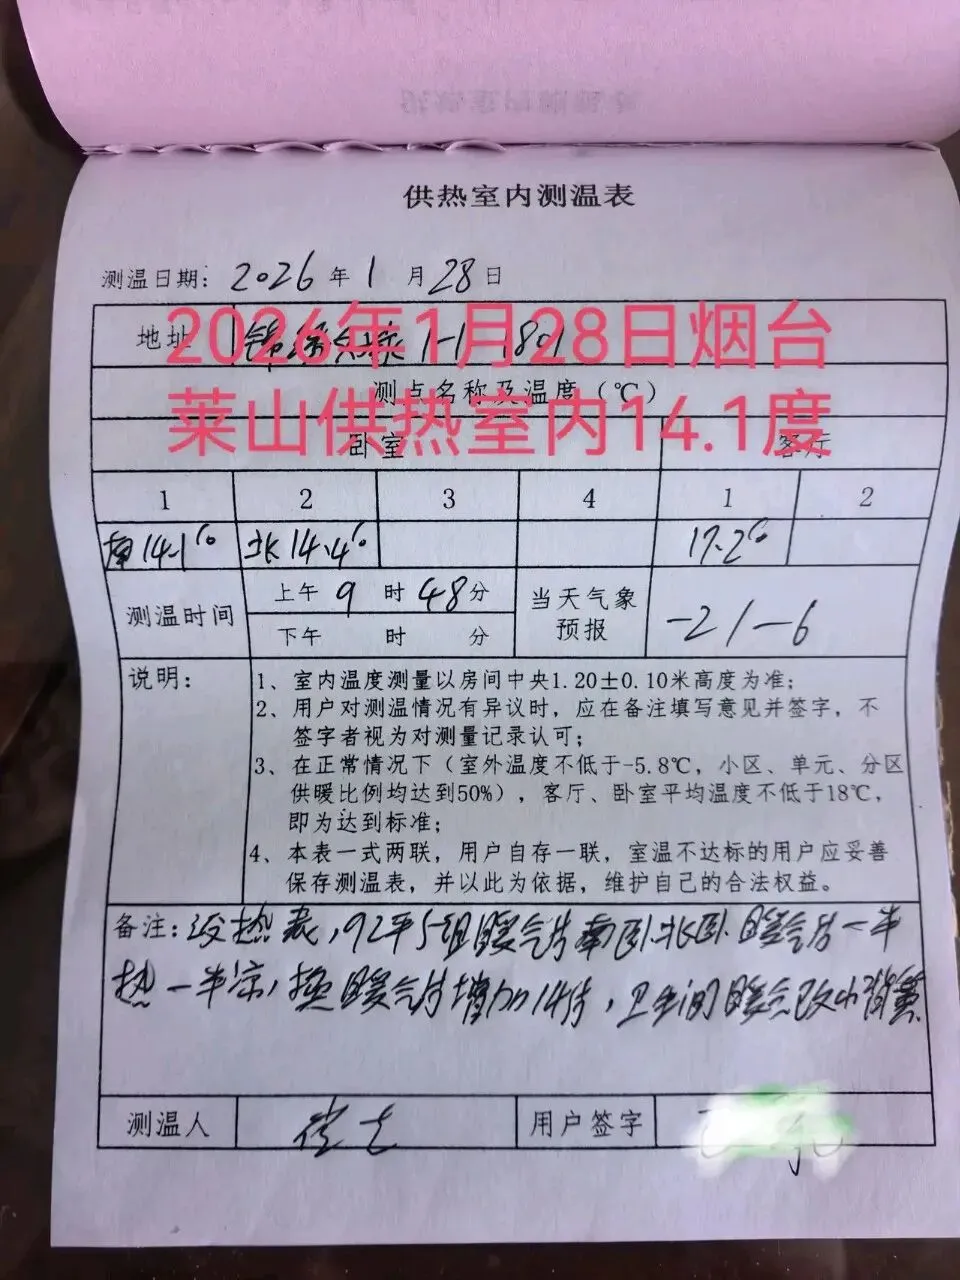 供热室内测温表
测温日期: 2026年1月28日
2026年1月28日烟台
莱山供热室内14.1度
地址 1-1 1801
测点名称及温度(℃)
卧室 客厅
1 2 3 4 1 2
南14.1℃ 北14.4℃ 17.2℃
测温时间 上午9时48分 当天气象预报 -2/-6
下午 时 分
说明:
1、室内温度测量以房间中央1.20±0.10米高度为准;
2、用户对测温情况有异议时,应在备注填写意见并签字,不
签字者视为对测量记录认可;
3、在正常情况下(室外温度不低于-5.8℃,小区、单元、分区
供暖比例均达到50%),客厅、卧室平均温度不低于18℃,
即为达到标准;
4、本表一式两联,用户自存一联,室温不达标的用户应妥善
保存测温表,并以此为依据,维护自己的合法权益。
备注:没热表,92平5组暖气片南卧.北卧.暖气片一半
热一半凉,换暖气片增加14片,卫生间暖气改小背篓
测温人 用户签字